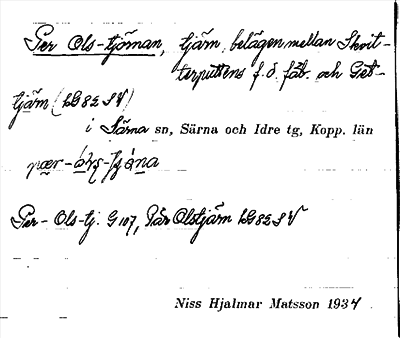 Per Ols-tjärnan, tjärn, belägen mellan Skvit-
terputtens f.d. fäb. och Get-
tjärn (LG 82 SV)
i Särna sn, Särna och Idre tg, Kopp. län
Per-Ols-tj. G 107, Pär Olstjärn LG 82 SV
Niss Hjalmar Matsson 1934